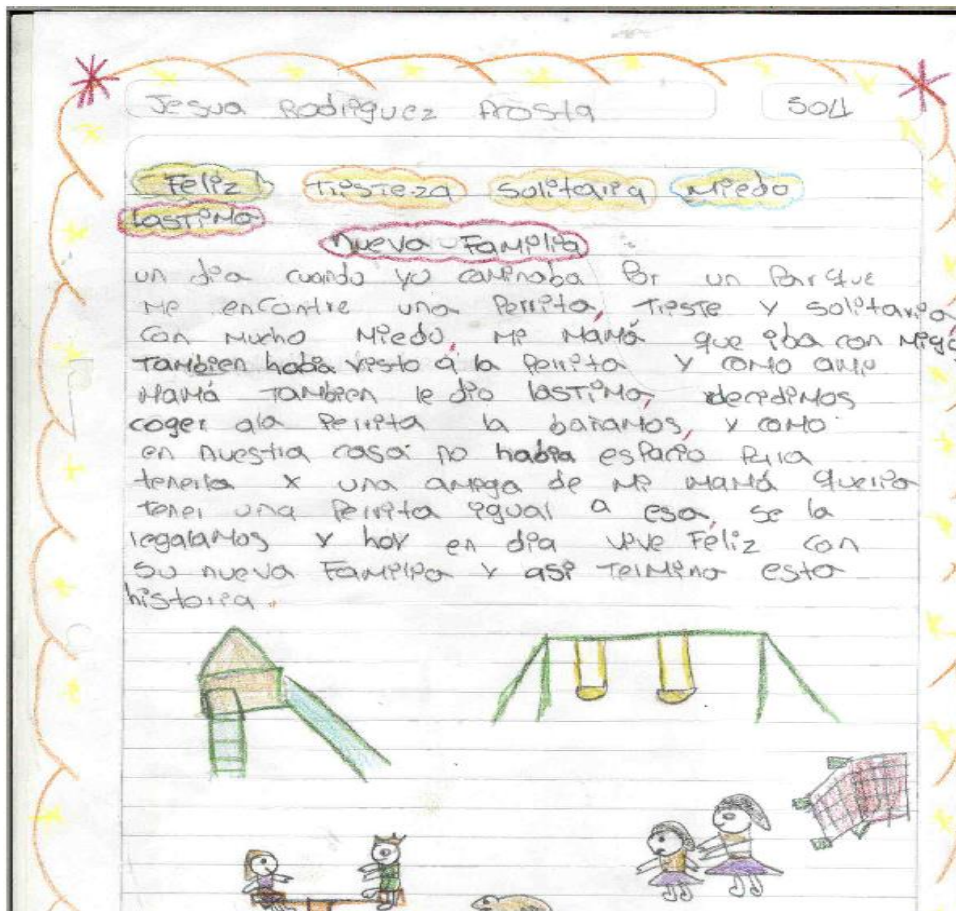 Jesua Rodriguez Acosta 504
Feliz Tristeza Solitaria Miedo
Lastima
Nueva Familia
un dia cuando yo caminaba Por un Parque
me encontre una Perrita, Triste y solitaria,
con mucho miedo, mi mamá que iba con migo
Tambien habia visto a la Perrita y como ami
mamá Tambien le dio lastima, decidimos
coger ala Perrita la bañamos, y como
en nuestra casa no habia espacio Para
tenerla y una amiga de mi mamá queria
tener una Perrita igual a esa, se la
regalamos y hoy en dia vive Feliz con
su nueva Familia y asi Termina esta
historia.